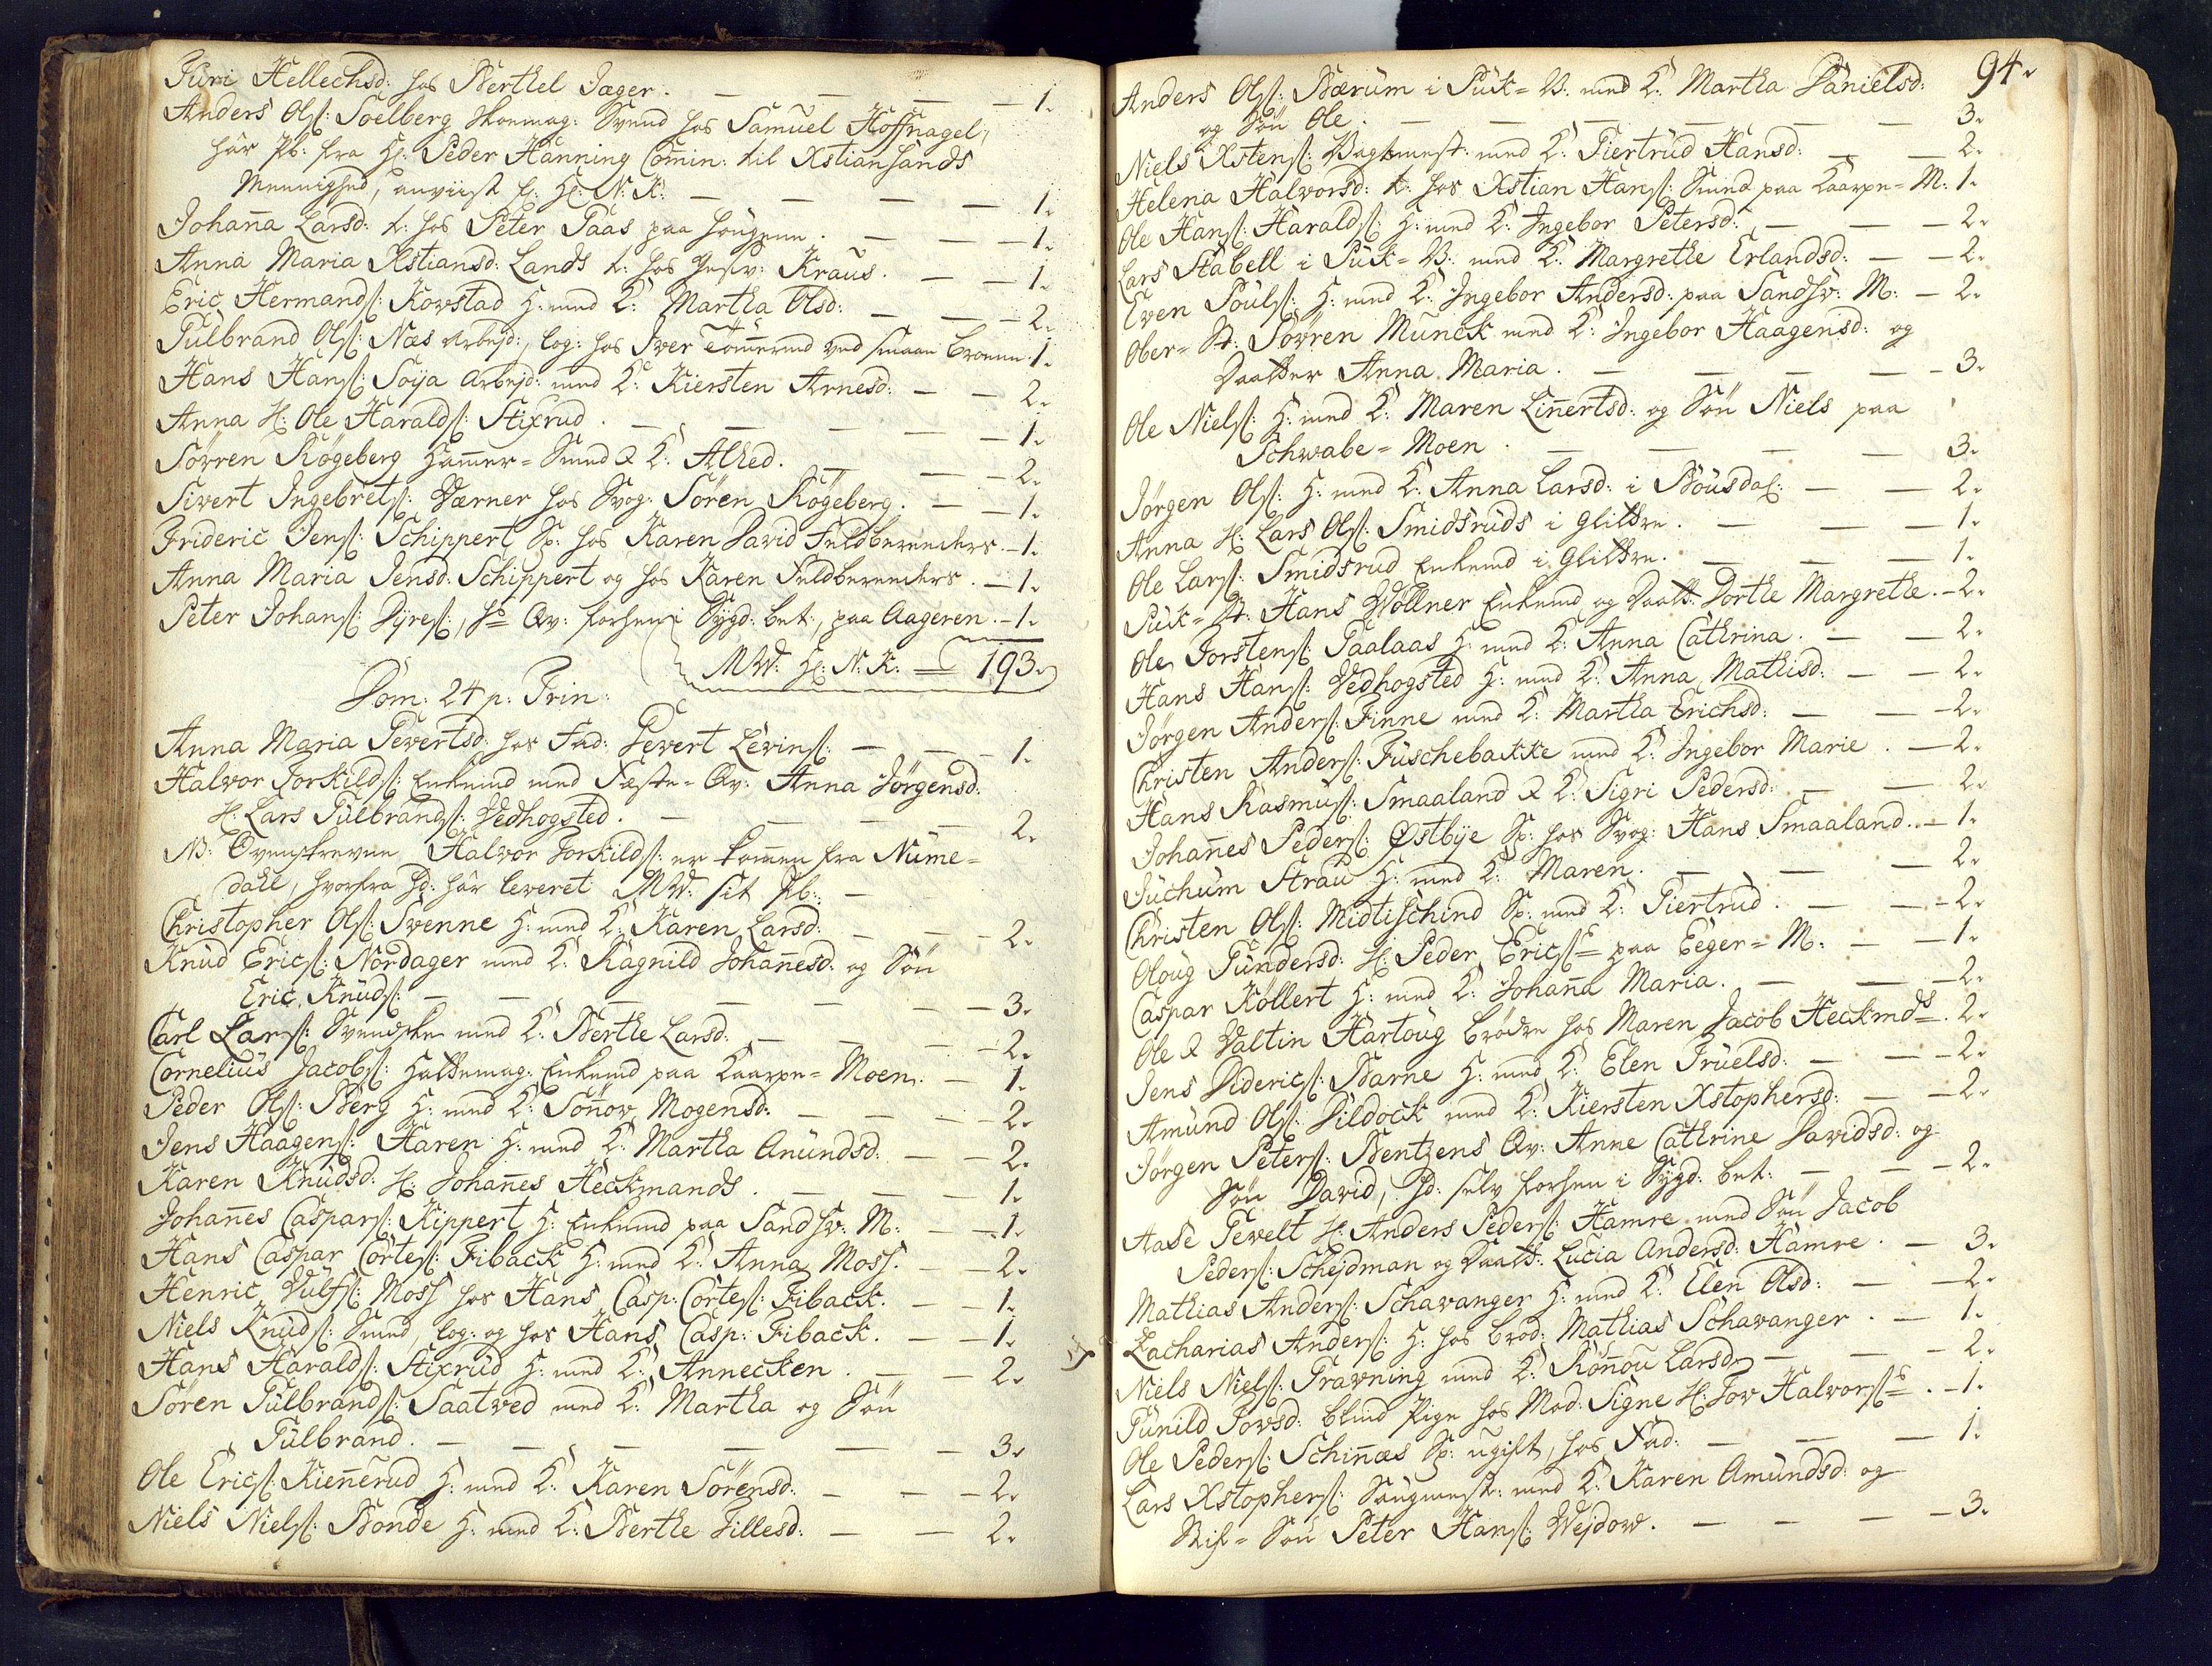 Turi Hellechsd: hos Berthel Jæger. — — — 1.
Anders Ols: Soelberg Skoemag: Svend hos Samuel Hoffnagel,
har Pb: fra H: Peder Hanning Comin: til Xstiansands
Mennighed, anviist H: N: K: — — — 1.
Johanna Larsd: t: hos Peter Paas paa Haugene. — — 1.
Anna Maria Xstiansd: Lands t: hos Kraus. — — 1.
Eric Hermands: Kovstad H: med K: Martha Olsd: — — 2.
Gulbrand Ols: Næs Arbejd:, log: hos Iver Tømermd ved smaae broene. 1.
Hans Hans: Soya Arbejd: med K: Kiersten Arnesd: — — 2.
Anna H: Ole Haralds: Stixrud. — — — 1.
Sørren Røgeberg Hamer-Smed & K: Alhed. — — 2.
Sivert Ingebrets: Værner hos Svog: Søren Røgeberg. — — 1.
Frideric Jens: Schippert Sp: hos Karen David Feldbereeders. — 1.
Anna Maria Jensd: Schippert og hos Karen Feldbereeders. — 1.
Peter Johans: Dyres:, Qv: forhen i Sygd: bet:, paa Aageren. — 1.
MW: H: N: K: = 193.
Dom: 24 p: Trin:
Anna Maria Gevertsd: hos Fad: Gevert Levins: — — 1.
Halvor Torkilds: Enkemd med Fæste-Qv: Anna Jørgensd:
H: Lars Gulbrands: Vedhogsted. — — — 2.
NB: Ovenskrevne Halvor Torkilds: er kommen fra Nume-
dahl, hvorfra hd: har leveret MW: sit Pb: —
Christopher Ols: Svenne H: med K: Karen Larsd: — — 2.
Knud Erics: Nordager med K: Ragnild Johannesd: og Søn
Eric Knuds: — — — 3.
Carl Lars: Svendske med K: Berthe Larsd: — — 2.
Cornelius Jacobs: Hattemag: Enkemd paa Kaarpe-Moen. — 1.
Peder Ols: Berg H: med K: Sønnov Mogensd: — — 2.
Jens Haagens: Haren H: med K: Martha Amundsd: — — 2.
Karen Knudsd: H: Johannes Heckmands. — — 1.
Johannes Caspars: Kippert H: Enkemd paa Sandsv: M: — 1.
Hans Caspar Cortes: Fiback H: med K: Anna Moss. — — 2.
Henric Wulfs: Moss hos Hans Casp: Cortes: Fiback. — — 1.
Niels Knuds: Smed, log: og hos Hans Casp: Fiback. — — 1.
Hans Haralds: Stixrud H: med K: Annecken. — — 2.
Søren Gulbrands: Saatved med K: Martha og Søn
Gulbrand. — — — 3.
Ole Erics: Kiennerud H: med K: Karen Sørensd: — — 2.
Niels Niels: Bonde H: med K: Berthe Gillesd: — — 2.
94.
Anders Ols: Bærum i Puk-V: med K: Martha Danielsd:
og Søn Ole. — — — 3.
Niels Xstens: Vagtmest: med K: Giertrud Hansd: — — 2.
Helena Halvorsd: t: hos Xstian Hans: Smed paa Kaarpe-M: 1.
Ole Hans: Haralds: H: med K: Ingebor Petersd: — — 2.
Lars Stabell i Puk-V: med K: Margrethe Erlandsd: — — 2.
Even Pouls: H: med K: Ingebor Andersd: paa Sandsv: M: — 2.
Ober-St: Sørren Munck med K: Ingebor Haagensd: og
Daatter Anna Maria. — — — 3.
Ole Niels: H: med K: Maren Linnertsd: og Søn Niels paa
Schwabe-Moen. — — — 3.
Jørgen Ols: H: med K: Anna Larsd: i — — 2.
Anna H: Lars Ols: Smidsruds i Glittre. — — 1.
Ole Lars: Smidsrud Enkemd i Glittre. — — 1.
Puk-St: Hans Wøllner Enkemd og Daatt: Dorthe Margrethe. — 2.
Ole Torstens: Gaalaas H: med K: Anna Cathrina. — — 2.
Hans Hans: Vedhogsted H: med K: Anna Mathisd: — — 2.
Jørgen Anders: Finne med K: Martha Erichsd: — — 2.
Christen Anders: Fuschebakke med K: Ingebor Marie. — 2.
Hans Rasmus: Smaaland & K: Sigri Pedersd: — — 2.
Johannes Peders: Østbye Sp: hos Svog: Hans Smaaland. — 1.
Juchum Strau H: med K: Maren. — — 2.
Christen Ols: Midtischind Sp: med K: Giertrud. — — 2.
Oloug Gundersd: H: Peder Erics: paa Eeger-M: — — 1.
Caspar Køllert H: med K: Johanna Maria. — — 2.
Ole & Valtin Hartoug brødre hos Maren Jacob Heckmds. 2.
Jens Diderics: Barne H: med K: Elen Truelsd: — — 2.
Amund Ols: Dildock med K: Kiersten Xstophersd: — — 2.
Jørgen Peters: Bentzens Qv: Anne Cathrine Davidsd: og
Søn David, hd: selv forhen i Sygd: bet: — — 2.
Aase Gevelt H: Anders Peders: Hamre med Søn Jacob
Peders: Schejdman og Daatt: Lucia Andersd: Hamre. — 3.
Mathias Anders: Schavanger H: med K: Elen Olsd: — — 2.
Zacharias Anders: H: hos brod: Mathias Schavanger. — 1.
Niels Niels: Gravning med K: Rønnou Larsd: — — 2.
Gunild Jovsd: blind Pige hos Mod: Signe H: Jov Halvors: — 1.
Ole Peders: Schinnæs Sp: ugift, hos Fad: — — 1.
Lars Xstophers: Saugmest: med K: Karen Amundsd: og
Stif-Søn Peter Hans: Wejdow. — — — 3.